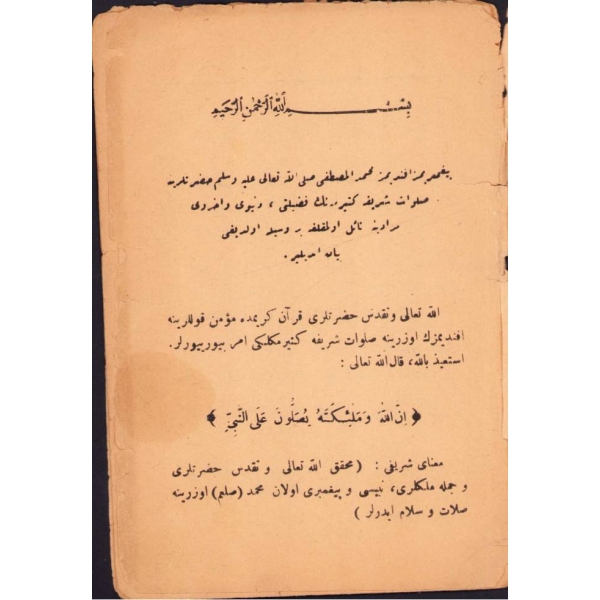 بِسْمِ اللّٰهِ الرَّحْمٰنِ الرَّحِيمِ
پيغمبريمز افنديمز محمد المصطفى صلى الله تعالى عليه وسلم حضرتلرينه
صلوات شريفه كتيرمه‌نك فضيلتى ، دنيوى واخروى
مرادينه نائل اولمقلغه بر وسيله اولديغى
بيان ايديلير .
الله تعالى وتقدس حضرتلرى قرآن كريمده مؤمن قوللرينه
افنديمزك اوزرينه صلوات شريفه كتيرمكلكى امر بيوريیورلر.
استعيذ بالله، قال الله تعالى :
﴿ اِنَّ اللّٰهَ وَمَلٰئِكَتَهُ يُصَلُّونَ عَلَى النَّبِيِّ ﴾
معناى شريفى : (محقق الله تعالى و تقدس حضرتلرى
و جمله ملكلرى، نبيسى و پيغمبرى اولان محمد (صلعم) اوزرينه
صلات و سلام ايدرلر )